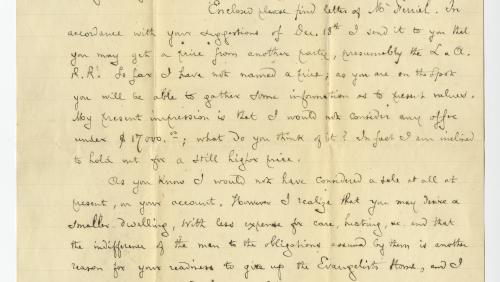 Enclosed please find letter of Mr In
accordance with your suggestions of Dec. 18th I send it to you that
you may get a "price" from another party, presumably the L & A.
R.R. So far I have not named a price; as you are on the spot
you will be able to gather some information as to present values.
My present impression is that I would not consider any offer
under $17000.00; what do you think of it? In fact I am inclined
to hold out for a still higher price.
As you know I would not have considered a sale at all at
present, on your account. However I realize that you may desire a
smaller dwelling, with less expense for care, heating, &c. and that
the indifference of the men to the obligations assumed by them is another
reason for your readiness to give up the Evangelists Home, and I